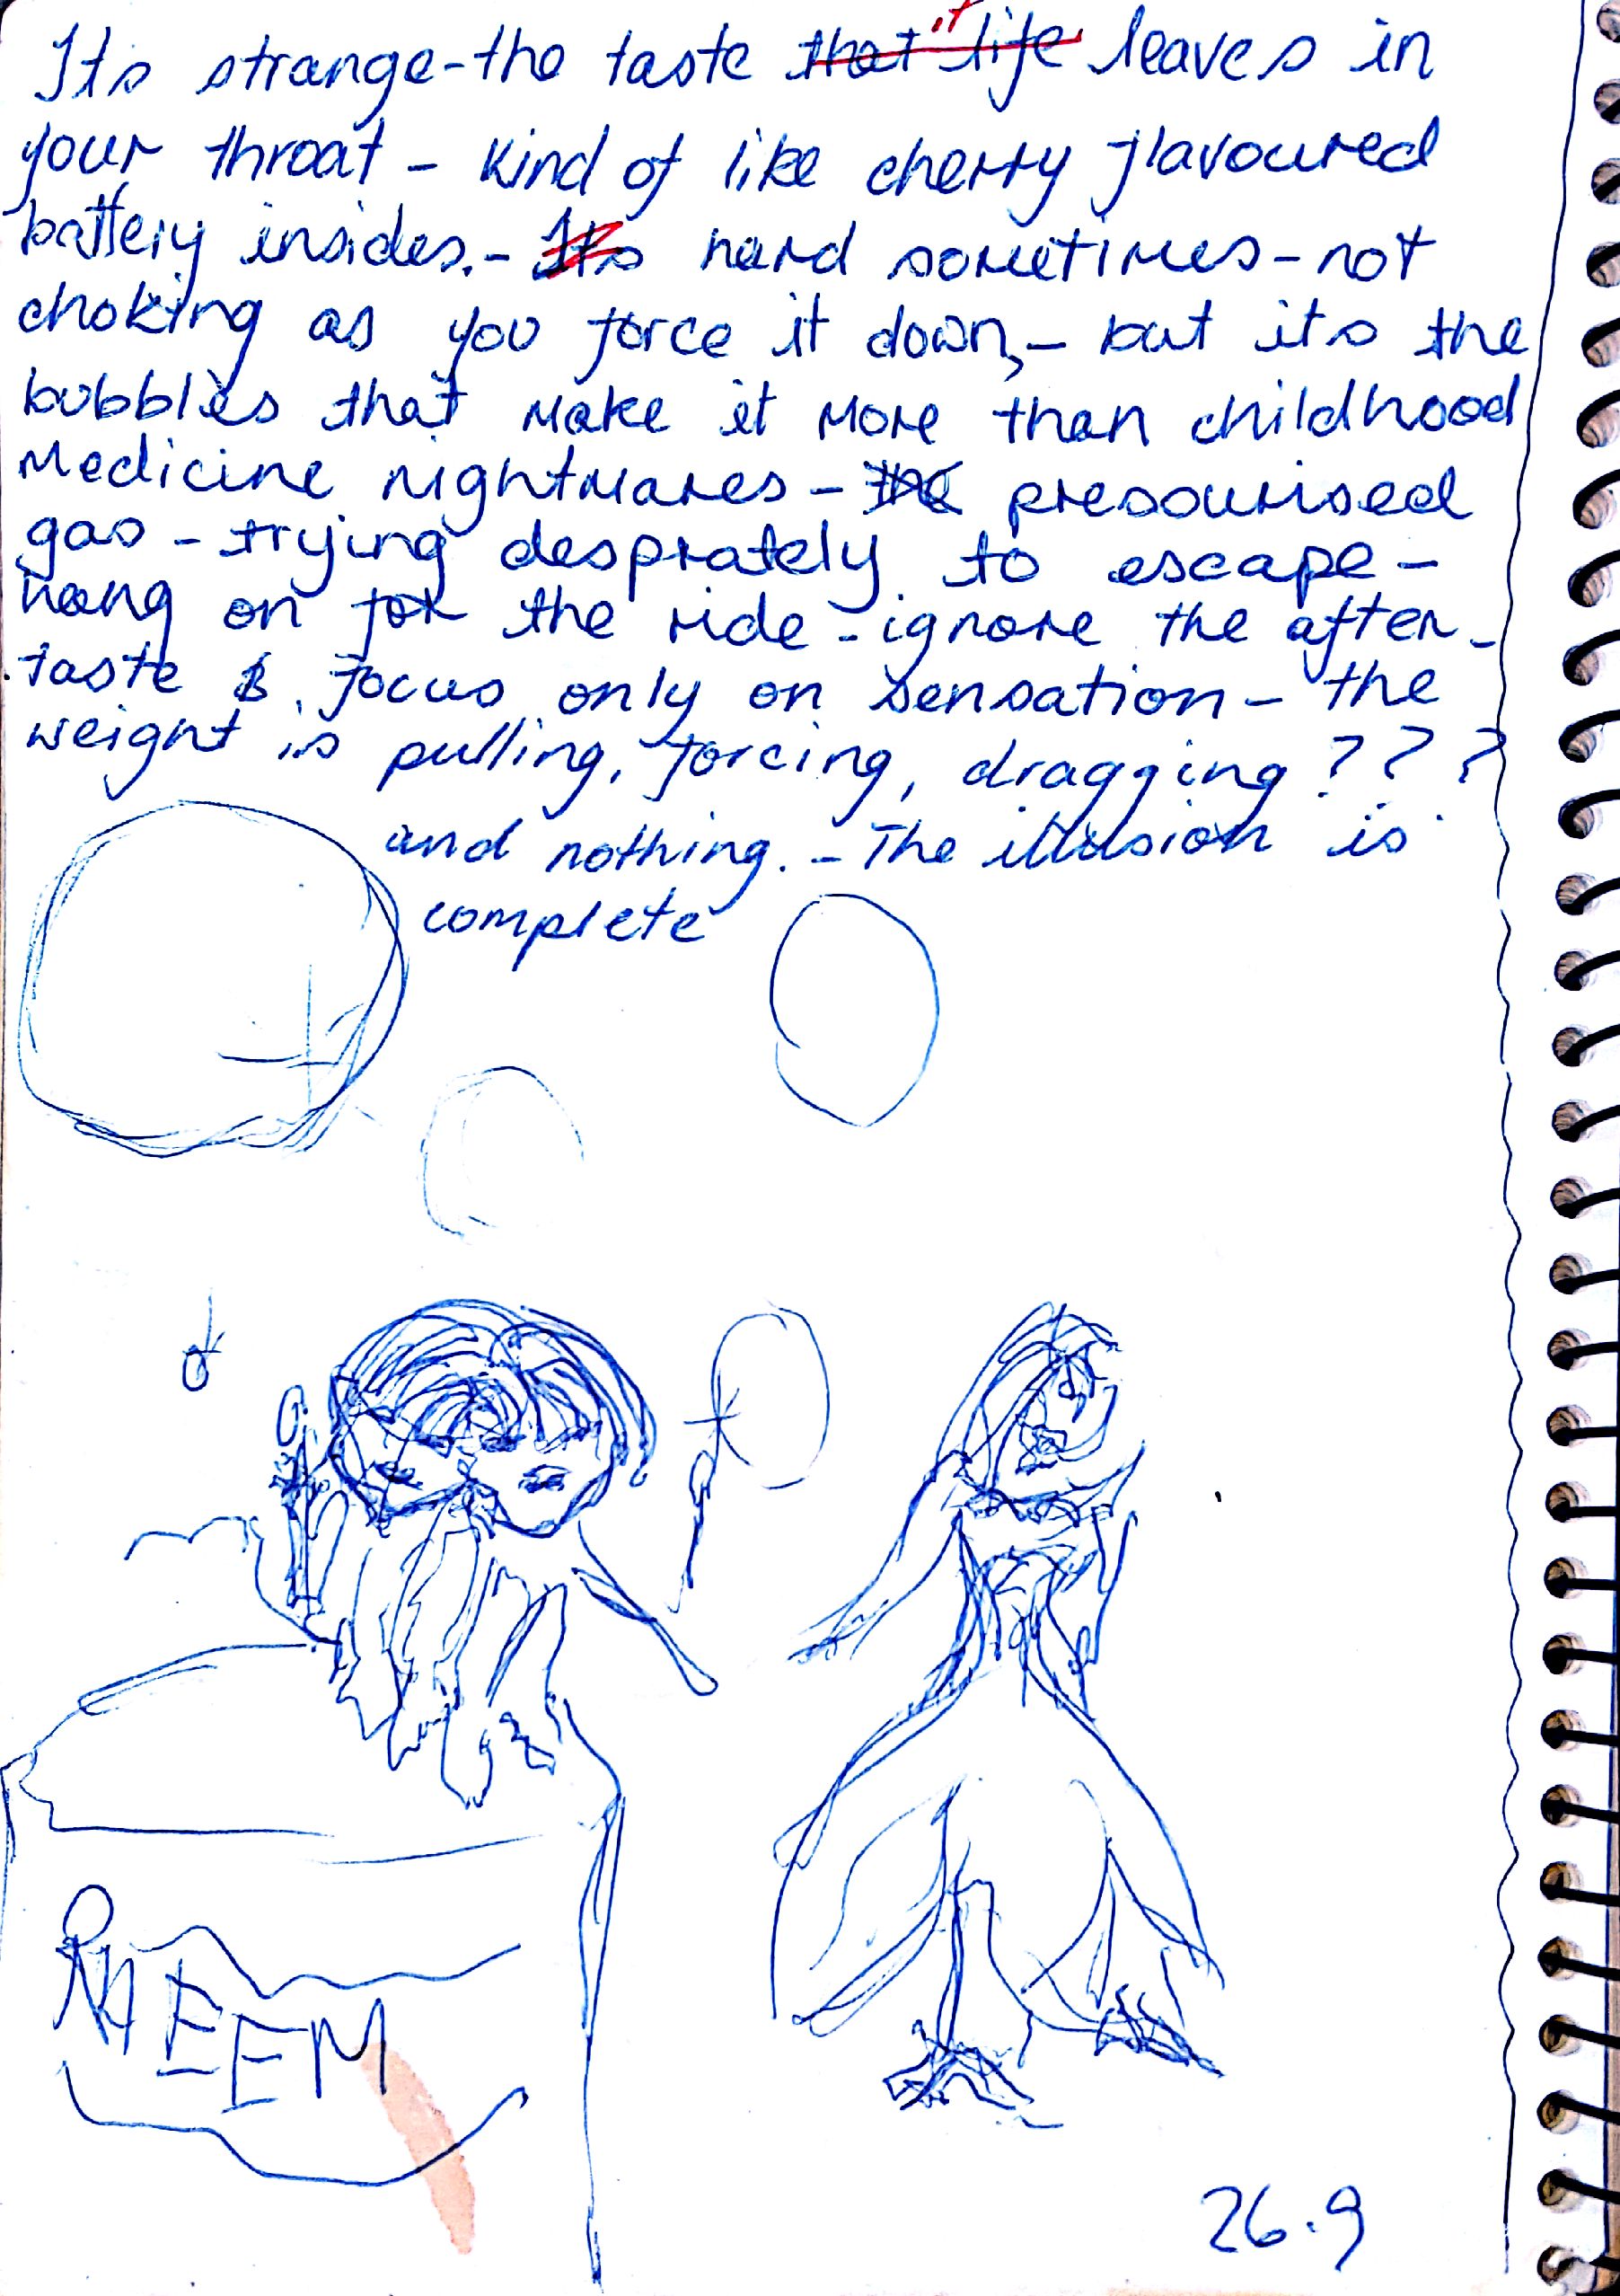 Its strange-the taste that it life leaves in
your throat - kind of like cherry flavoured
battery insides.- Its hard sometimes - not
choking as you force it down, - but its the
bubbles that make it more than childhood
medicine nightmares - the pressourised
gas - trying desprately to escape -
hang on for the ride - ignore the after-
taste & focus only on sensation - the
weight is pulling, forcing, dragging ? ? ?
and nothing. - The illusion is
complete
RHEEM
26.9